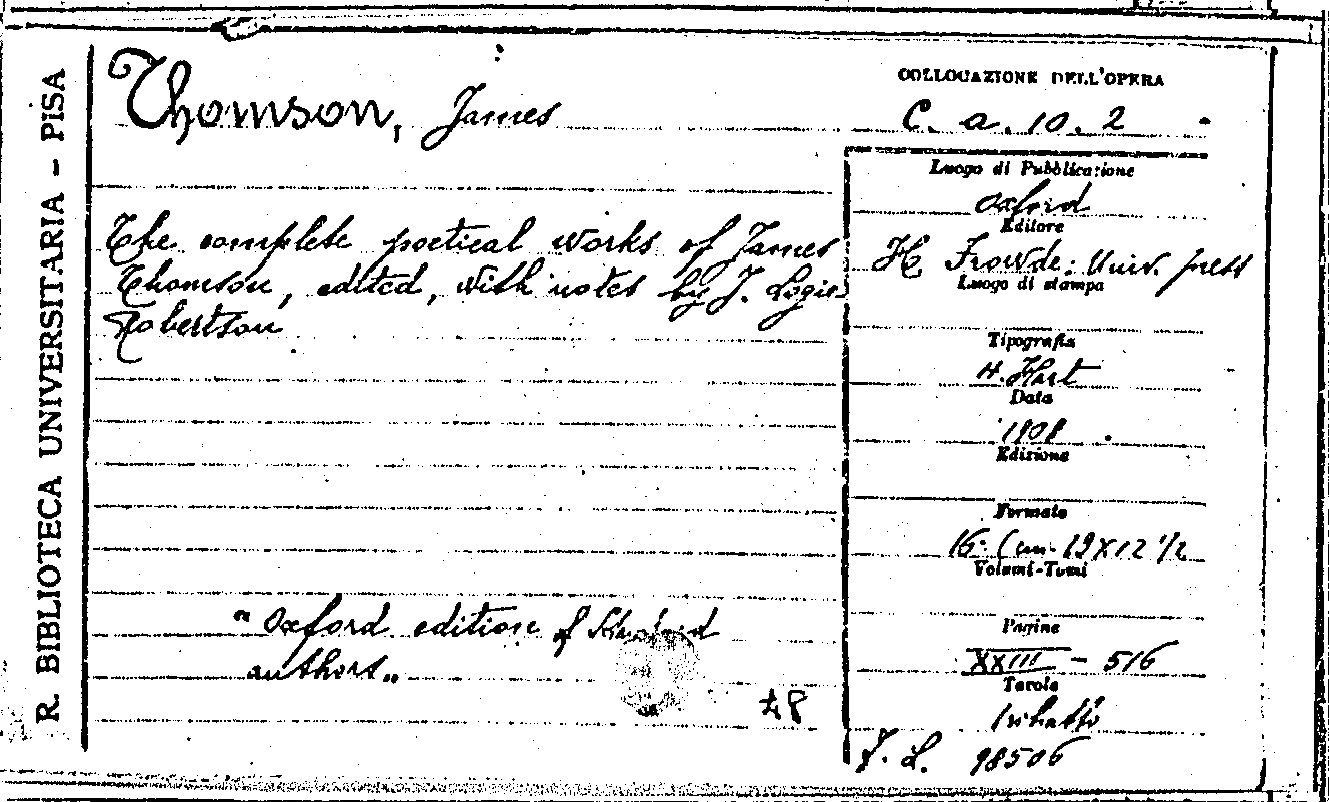 R. BIBLIOTECA UNIVERSITARIA - PISA
Thomson, James
COLLOCAZIONE DELL'OPERA
C. a. 10. 2
The complete poetical works of James
Thomson, edited, with notes by J. Logie
Robertson
"Oxford edition of Standard
authors"
48
Luogo di Pubblicazione
Oxford
Editore
H. Frowde: Univ. press
Luogo di stampa
Tipografia
H. Hart
Data
1908
Edizione
Formato
16° (cm. 19 x 12 1/2
Volumi-Tomi
Pagine
XXIII - 516
Tavole
1 ritratto
98506